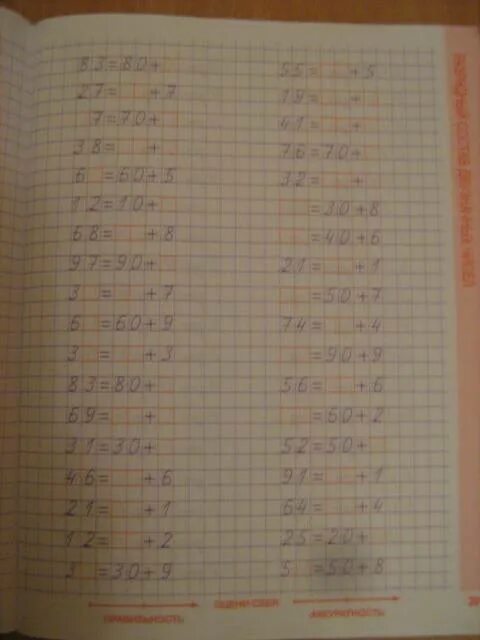 83=80+
27= +7
7=70+
38= +
6 =60+5
12=10+
68= +8
97=90+
3 = +7
6 =60+9
3 = +3
83=80+
69= +
31=30+
46= +6
21= +1
12= +2
3 =30+9
55= +5
19= +
41= +
76=70+
32= +
=30+8
=40+6
21= +1
=50+7
74= +4
=90+9
56= +6
=60+2
52=50+
91= +1
64= +4
25=20+
5 =50+8
ПРАВИЛЬНОСТЬ
ОЦЕНИ СЕБЯ
АККУРАТНОСТЬ